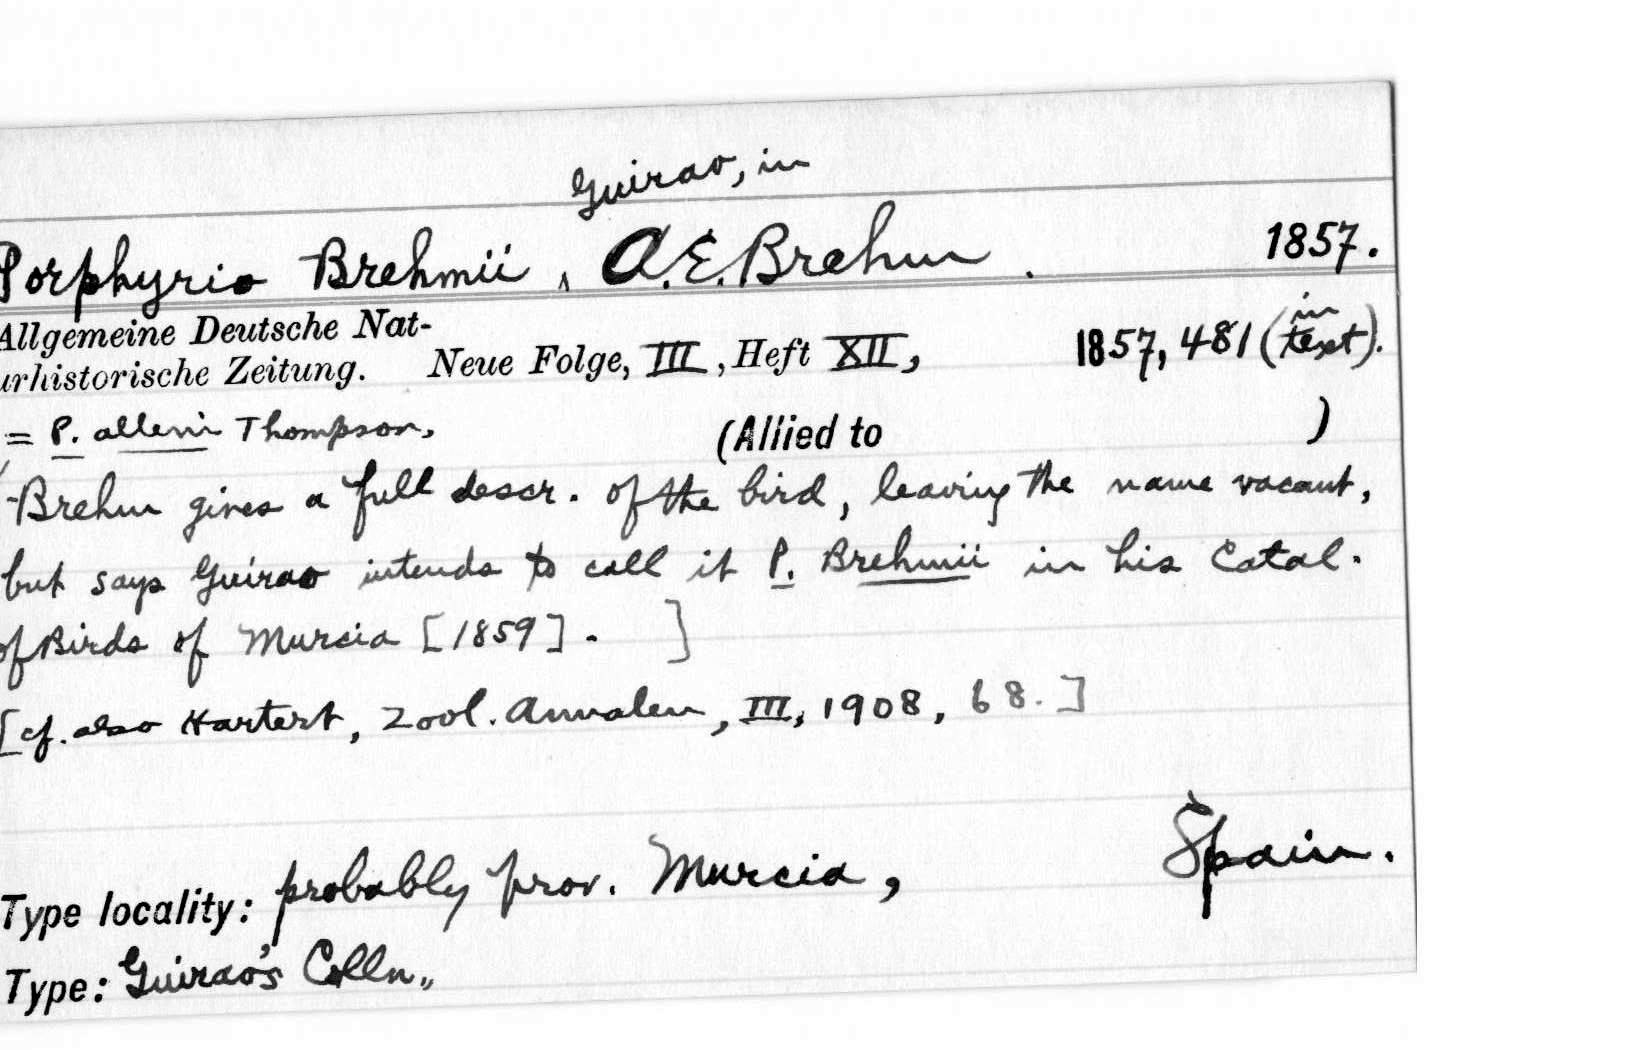 Guirao, in
Porphyrio Brehmii ‸ A.E. Brehm . 1857.
Allgemeine Deutsche Nat-
urhistorische Zeitung. Neue Folge, III, Heft XII, 1857, 481 (in text).
= P. alleni Thompson, (Allied to )
Brehm gives a full descr. of the bird, leaving the name vacant,
but says Guirao intends to call it P. Brehmii in his Catal.
of Birds of Murcia [1859]. ]
[cf. also Hartert, Zool. Annalen, III, 1908, 68.]
Type locality: probably prov. Murcia, Spain.
Type: Guirao's Colln.,